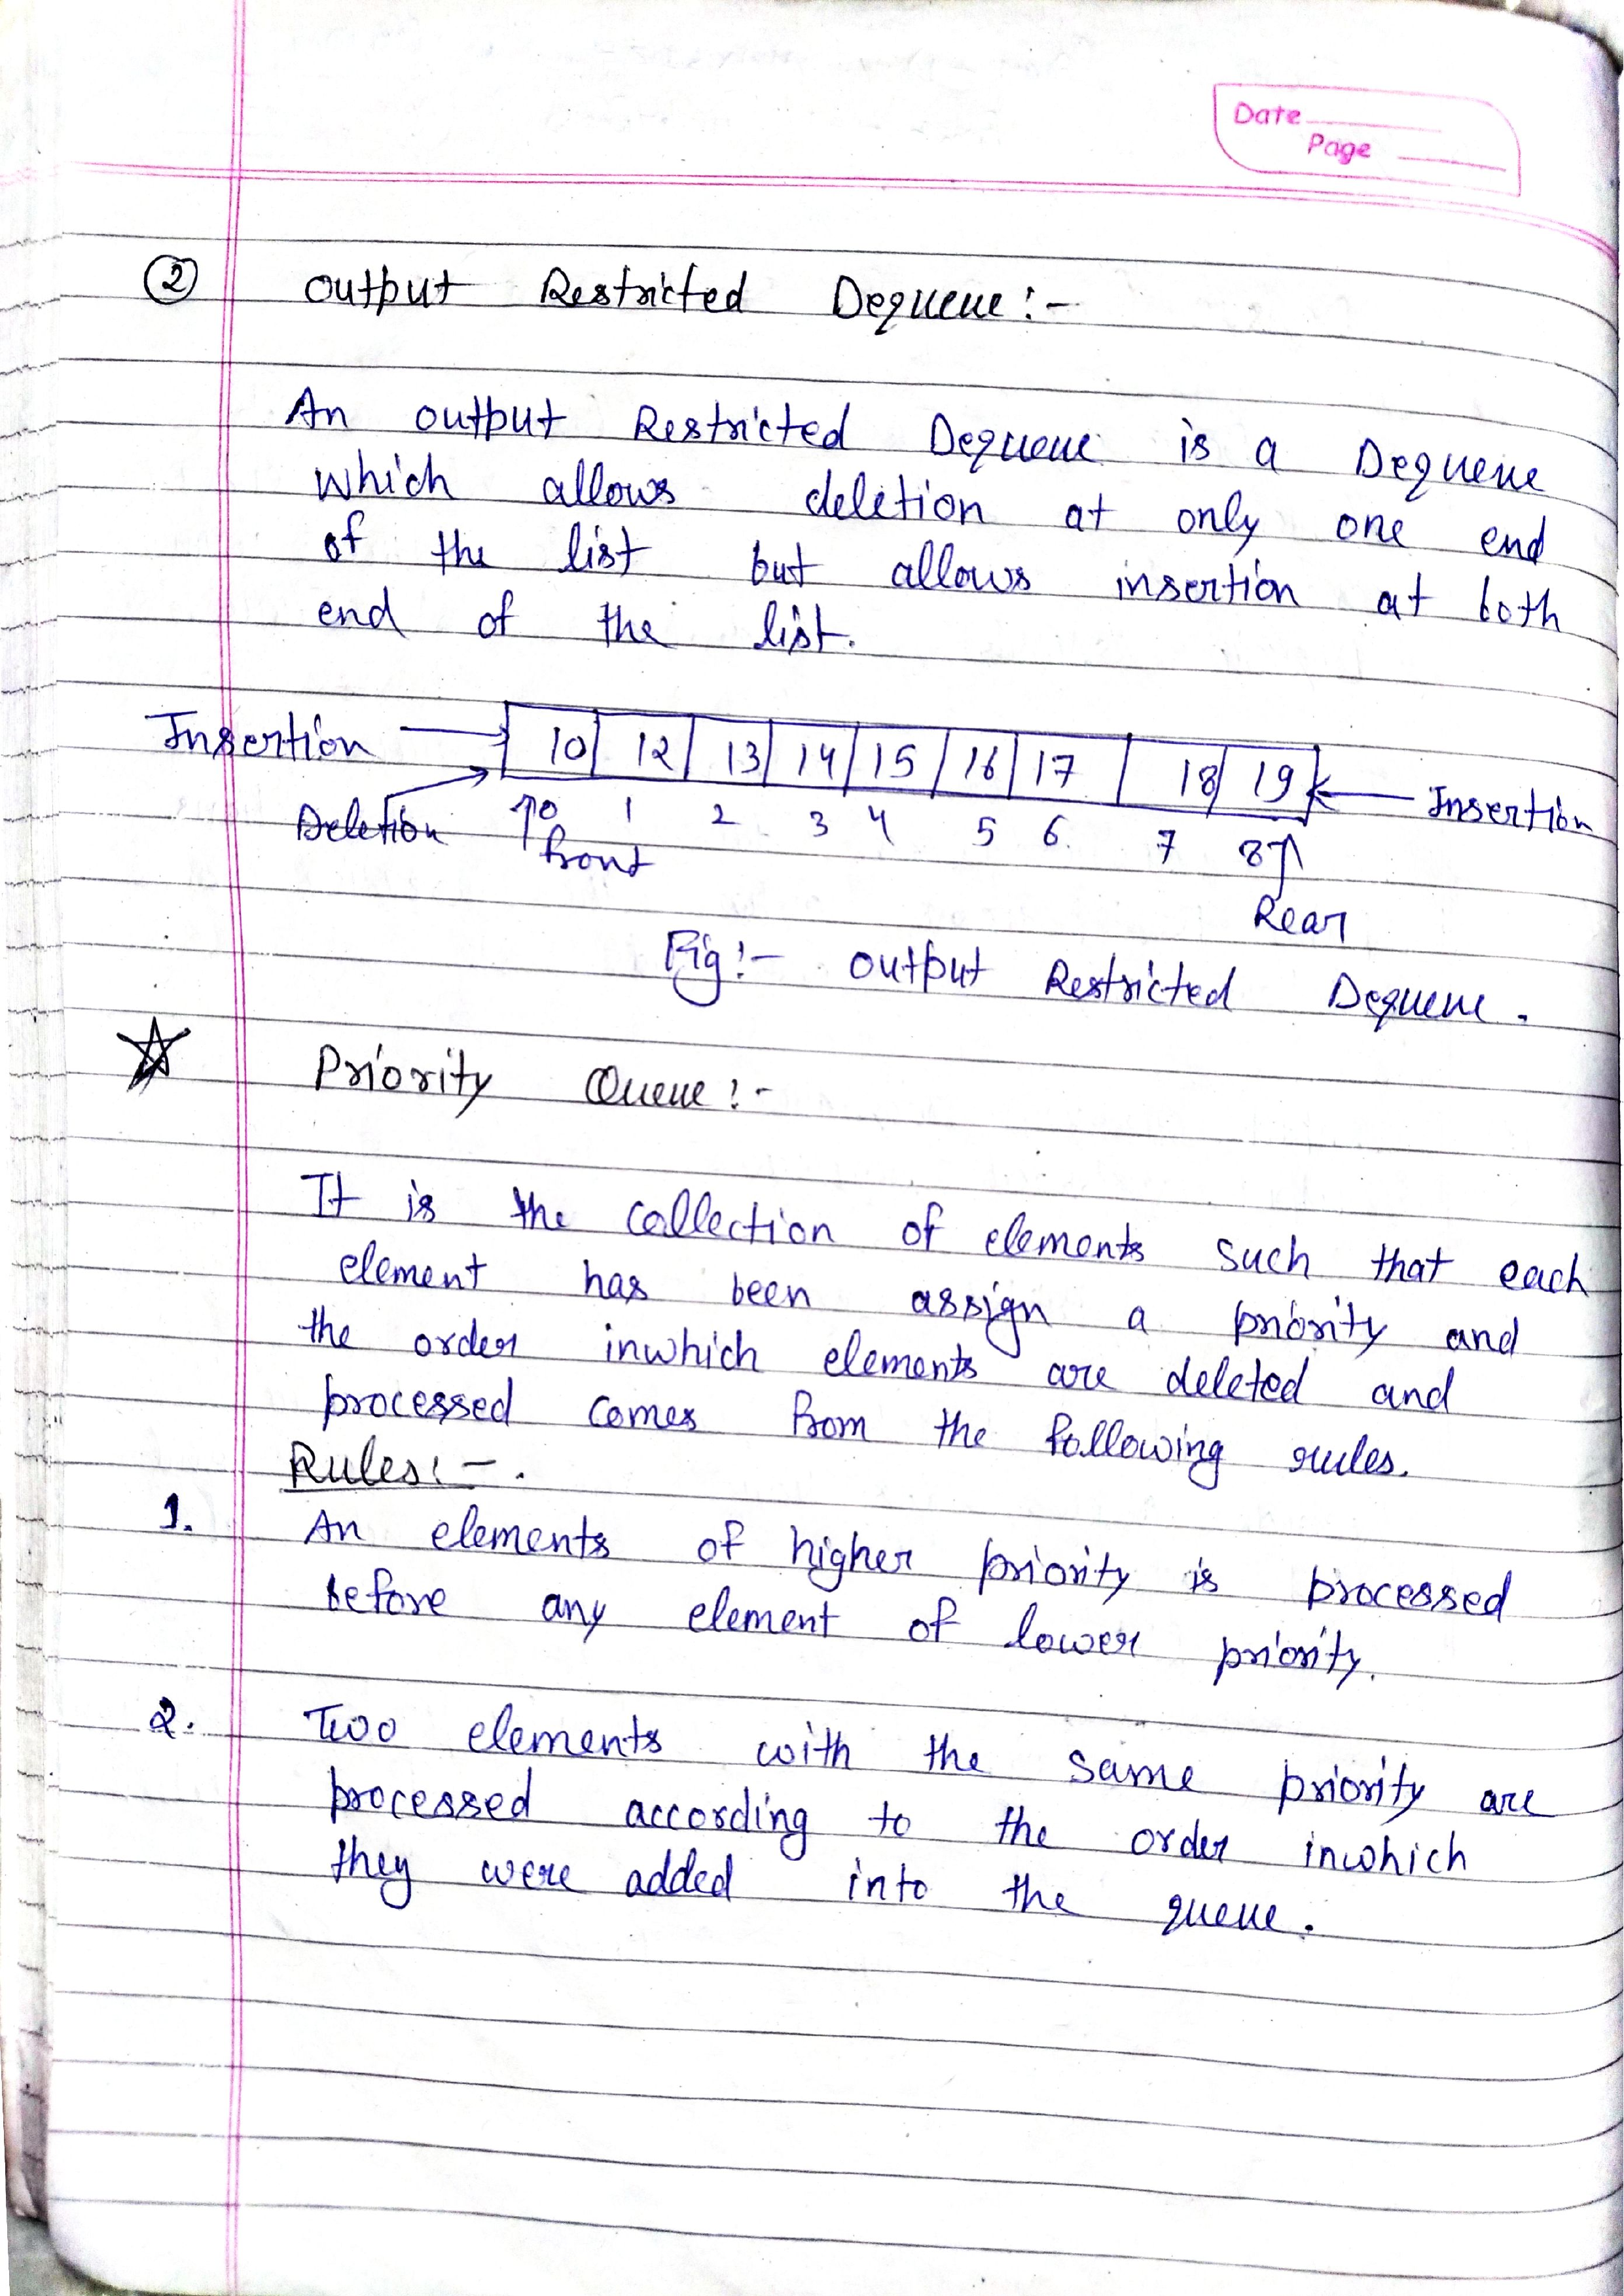 Date
Page
② Output Restricted Dequeue:-
An output Restricted Dequeue is a Dequeue
which allows deletion at only one end
of the list but allows insertion at both
end of the list.
Insertion 10 12 13 14 15 16 17 18 19 Insertion
Deletion 0 1 2 3 4 5 6 7 8
front
Rear
Fig:- output Restricted Dequeue.
☆ Priority Queue:-
It is the collection of elements such that each
element has been assign a priority and
the order inwhich elements are deleted and
processed comes from the following rules.
Rules:-.
1. An elements of higher priority is processed
before any element of lower priority.
2. Two elements with the same priority are
processed according to the order inwhich
they were added into the queue.